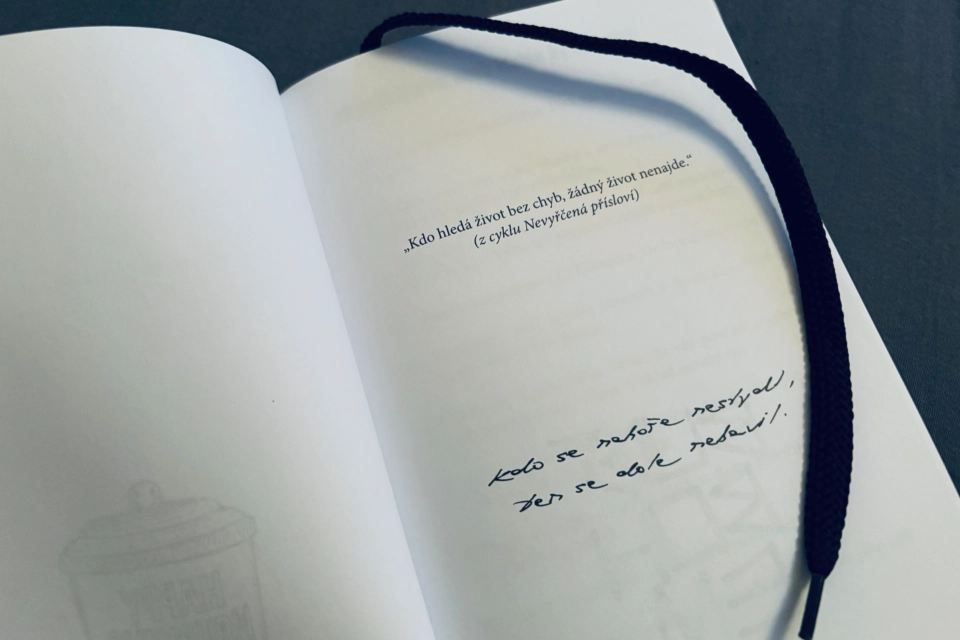 „Kdo hledá život bez chyb, žádný život nenajde.“
(z cyklu Nevyřčená přísloví)
kdo se nahoře nestyděl,
ten se dole nebavil.